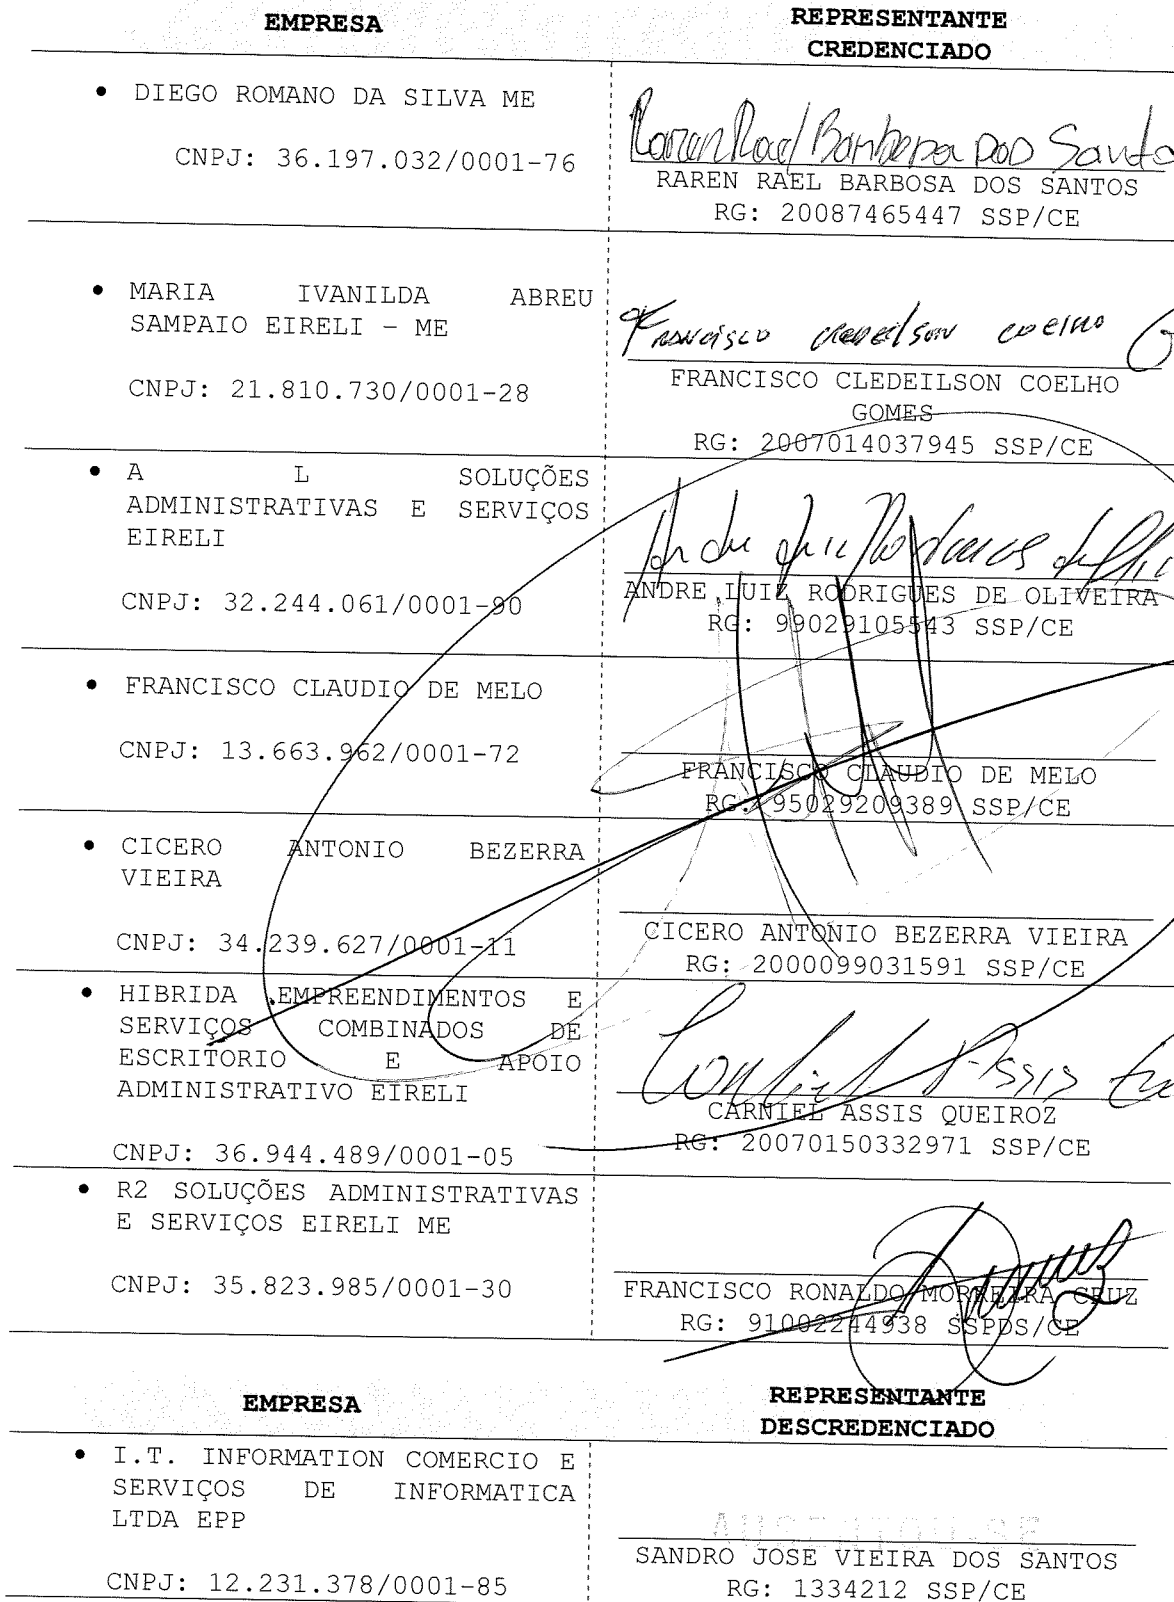 EMPRESA
REPRESENTANTE
CREDENCIADO
• DIEGO ROMANO DA SILVA ME
CNPJ: 36.197.032/0001-76
Raren Rael Barbosa DOS Santo
RAREN RAEL BARBOSA DOS SANTOS
RG: 20087465447 SSP/CE
• MARIA IVANILDA ABREU
SAMPAIO EIRELI - ME
CNPJ: 21.810.730/0001-28
Francisco cledeilson coelho G
FRANCISCO CLEDEILSON COELHO
GOMES
RG: 2007014037945 SSP/CE
• A L SOLUÇÕES
ADMINISTRATIVAS E SERVIÇOS
EIRELI
CNPJ: 32.244.061/0001-90
Andre Luiz Rodrigues de Oli
ANDRE LUIZ RODRIGUES DE OLIVEIRA
RG: 99029105543 SSP/CE
• FRANCISCO CLAUDIO DE MELO
CNPJ: 13.663.962/0001-72
FRANCISCO CLAUDIO DE MELO
RG: 95029209389 SSP/CE
• CICERO ANTONIO BEZERRA
VIEIRA
CNPJ: 34.239.627/0001-11
CICERO ANTONIO BEZERRA VIEIRA
RG: 2000099031591 SSP/CE
• HIBRIDA EMPREENDIMENTOS E
SERVIÇOS COMBINADOS DE
ESCRITORIO E APOIO
ADMINISTRATIVO EIRELI
CNPJ: 36.944.489/0001-05
Carniel Assis
CARNIEL ASSIS QUEIROZ
RG: 20070150332971 SSP/CE
• R2 SOLUÇÕES ADMINISTRATIVAS
E SERVIÇOS EIRELI ME
CNPJ: 35.823.985/0001-30
FRANCISCO RONALDO MORREIRA CRUZ
RG: 91002244938 SSPDS/CE
EMPRESA
REPRESENTANTE
DESCREDENCIADO
• I.T. INFORMATION COMERCIO E
SERVIÇOS DE INFORMATICA
LTDA EPP
CNPJ: 12.231.378/0001-85
AUSENTOU-SE
SANDRO JOSE VIEIRA DOS SANTOS
RG: 1334212 SSP/CE